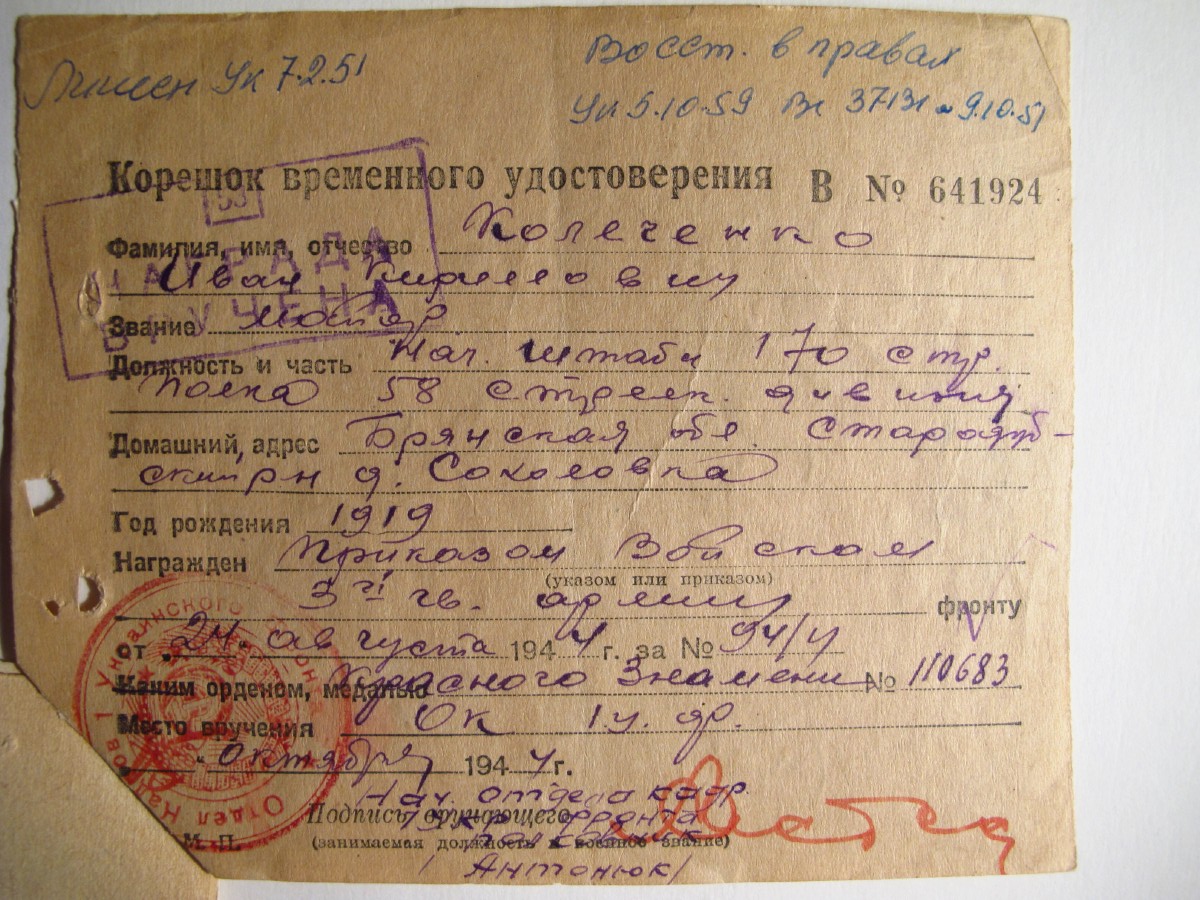 Лишен Ук 7.2.51
Восст. в правах
Ук 5.10.59 Вх 9.10.51
Корешок временного удостоверения В № 641924
53
НАГРАДА
ВРУЧЕНА
Фамилия, имя, отчество Колеченко
Иван Кириллович
Звание майор
Должность и часть Нач. штаба 170 стр.
полка 58 стрелк. дивизия
Домашний, адрес Брянская обл. Стародуб-
ский рн д. Соколовка
Год рождения 1919
Награжден Приказом Войскам
(указом или приказом)
3й гв. армии фронту
от „24" августа 1944 г. за № 94/н
Каким орденом, медалью Красного Знамени № 110683
Место вручения ОК 1 У. фр.
„ " октября 1944 г.
Нач. отдела кадр
Подпись вручающего
1 Укр фронта
(занимаемая должность и военное звание)
полковник
/Антонюк/
М. П.
Отдел Наград 1 Украинского фронта